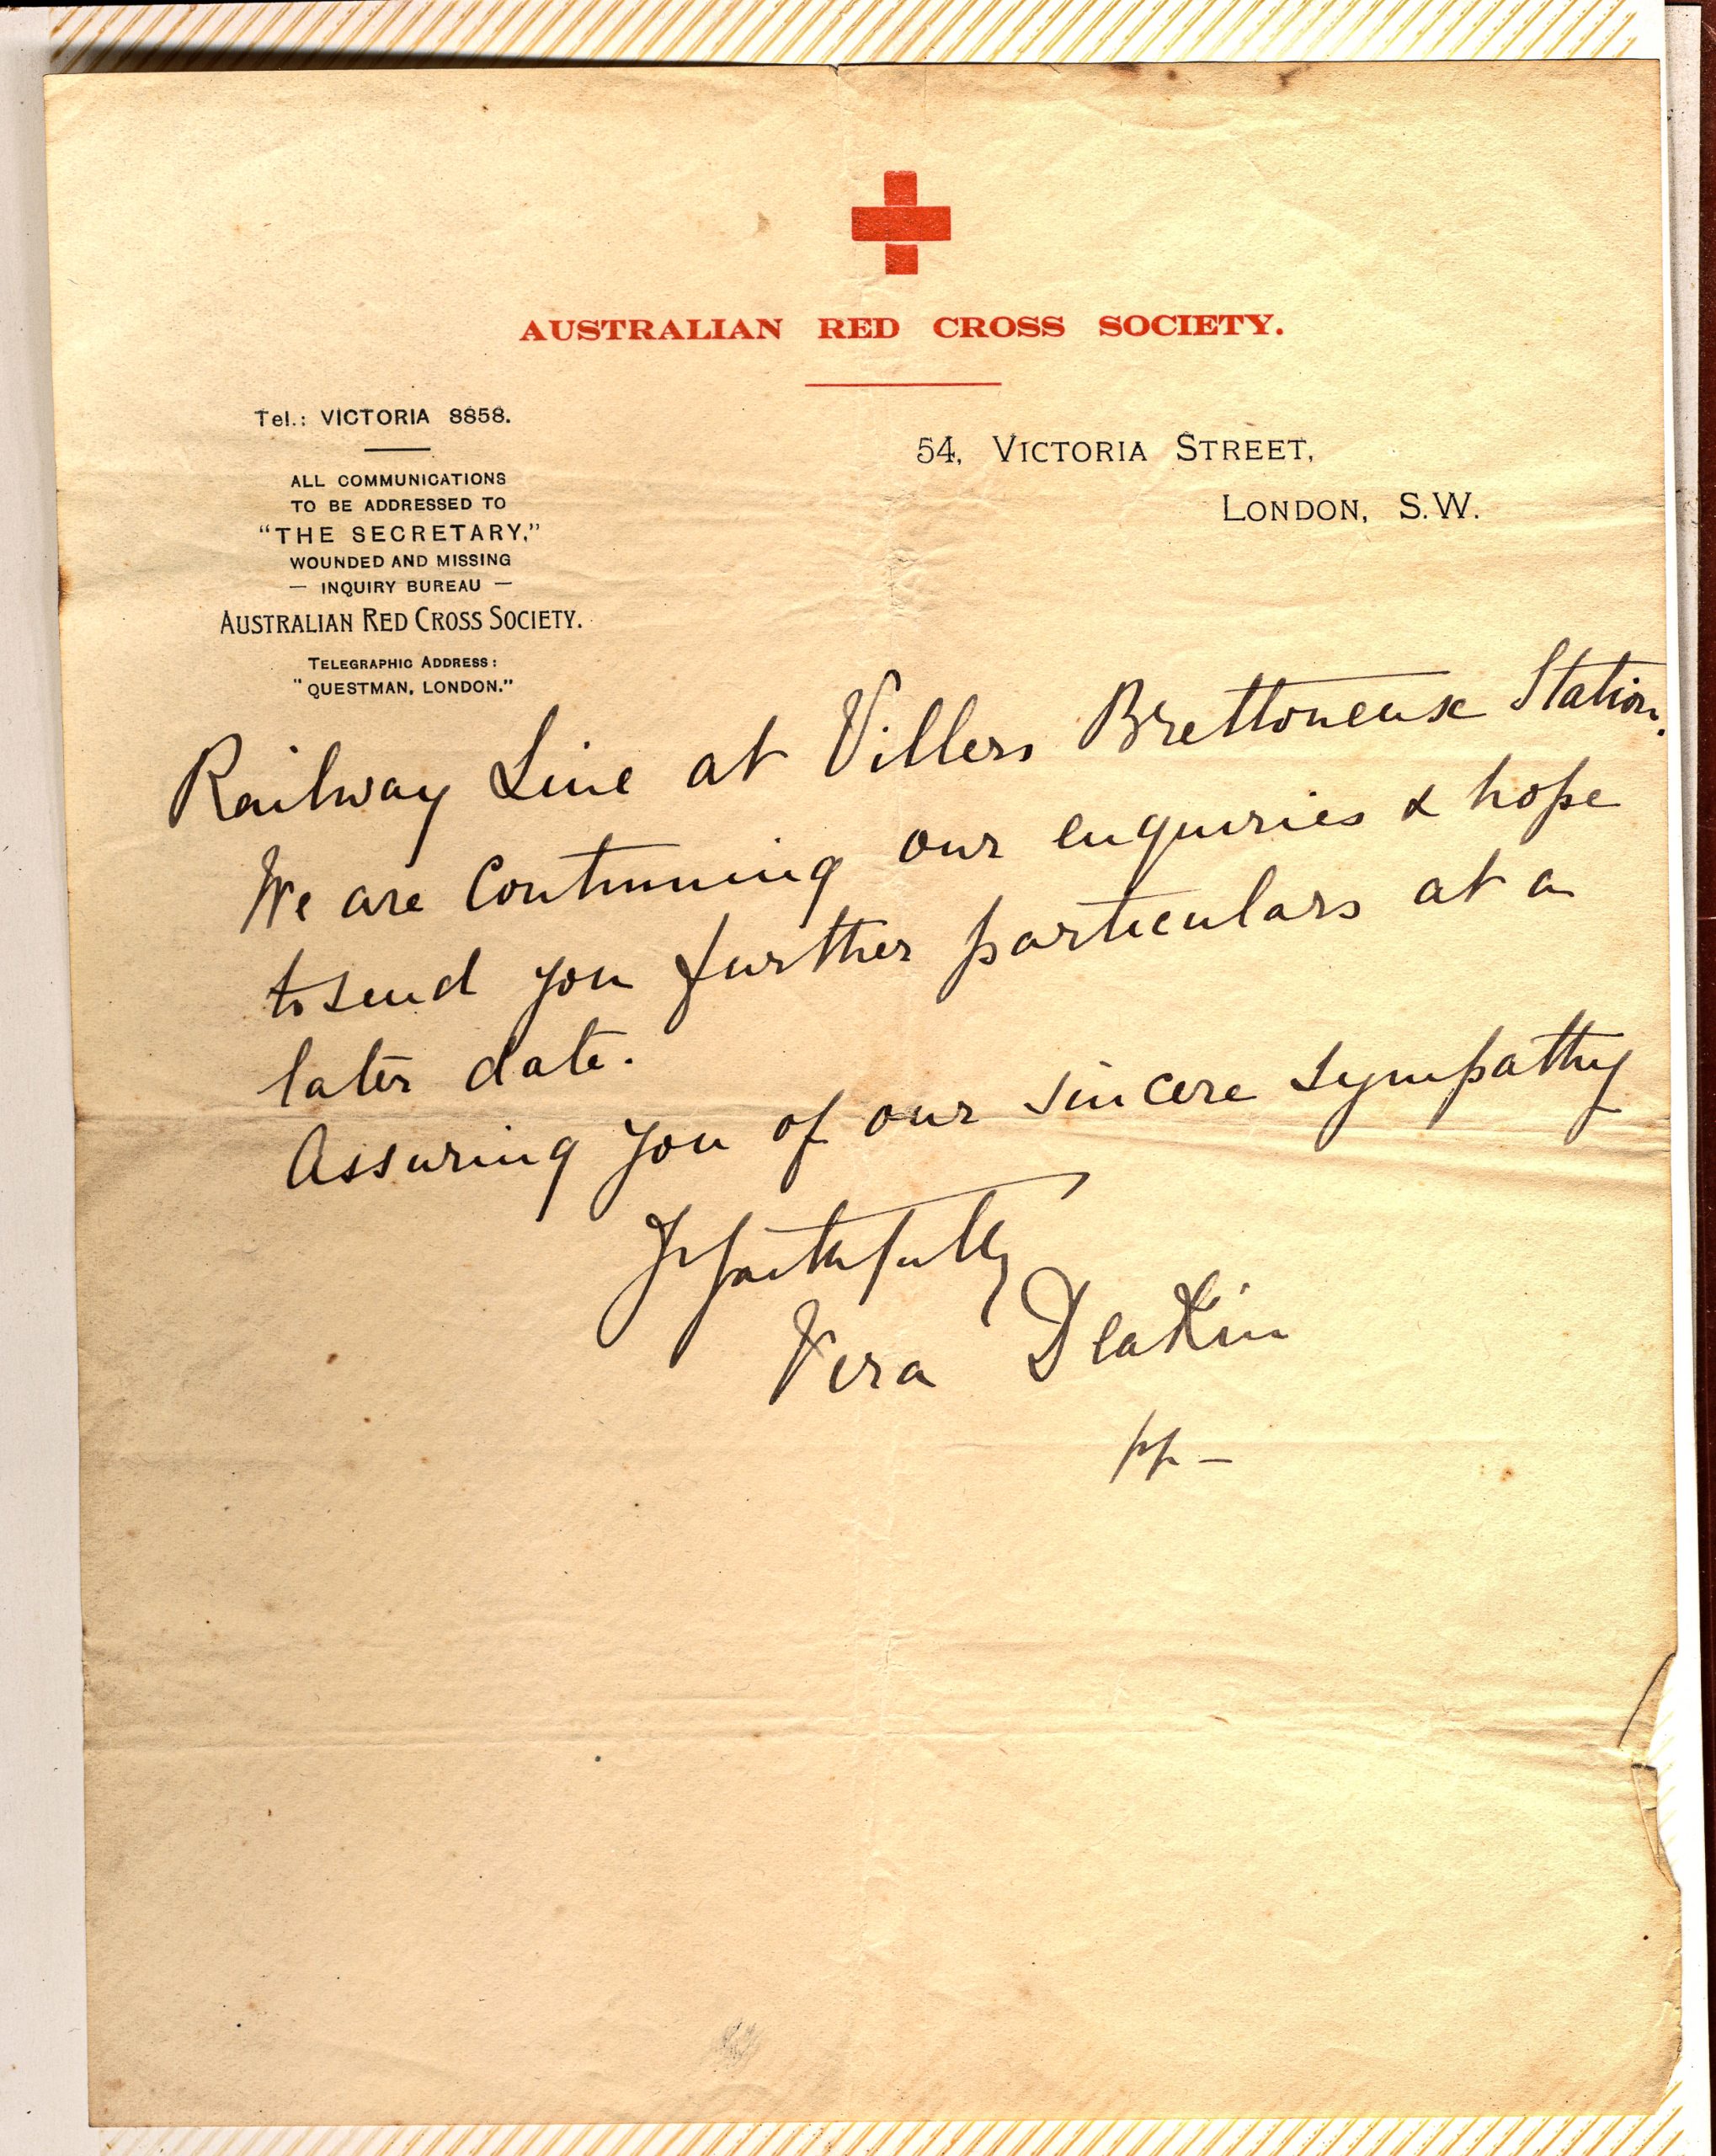 AUSTRALIAN RED CROSS SOCIETY.
Tel.: VICTORIA 8858.
ALL COMMUNICATIONS
TO BE ADDRESSED TO
"THE SECRETARY,"
WOUNDED AND MISSING
— INQUIRY BUREAU —
AUSTRALIAN RED CROSS SOCIETY.
TELEGRAPHIC ADDRESS:
"QUESTMAN, LONDON."
54, VICTORIA STREET,
LONDON, S.W.
Railway Line at Villers Brettoneux Station.
We are continuing our enquiries & hope
to send you further particulars at a
later date.
Assuring you of our sincere sympathy
Yrs faithfully
Vera Deakin
pp —